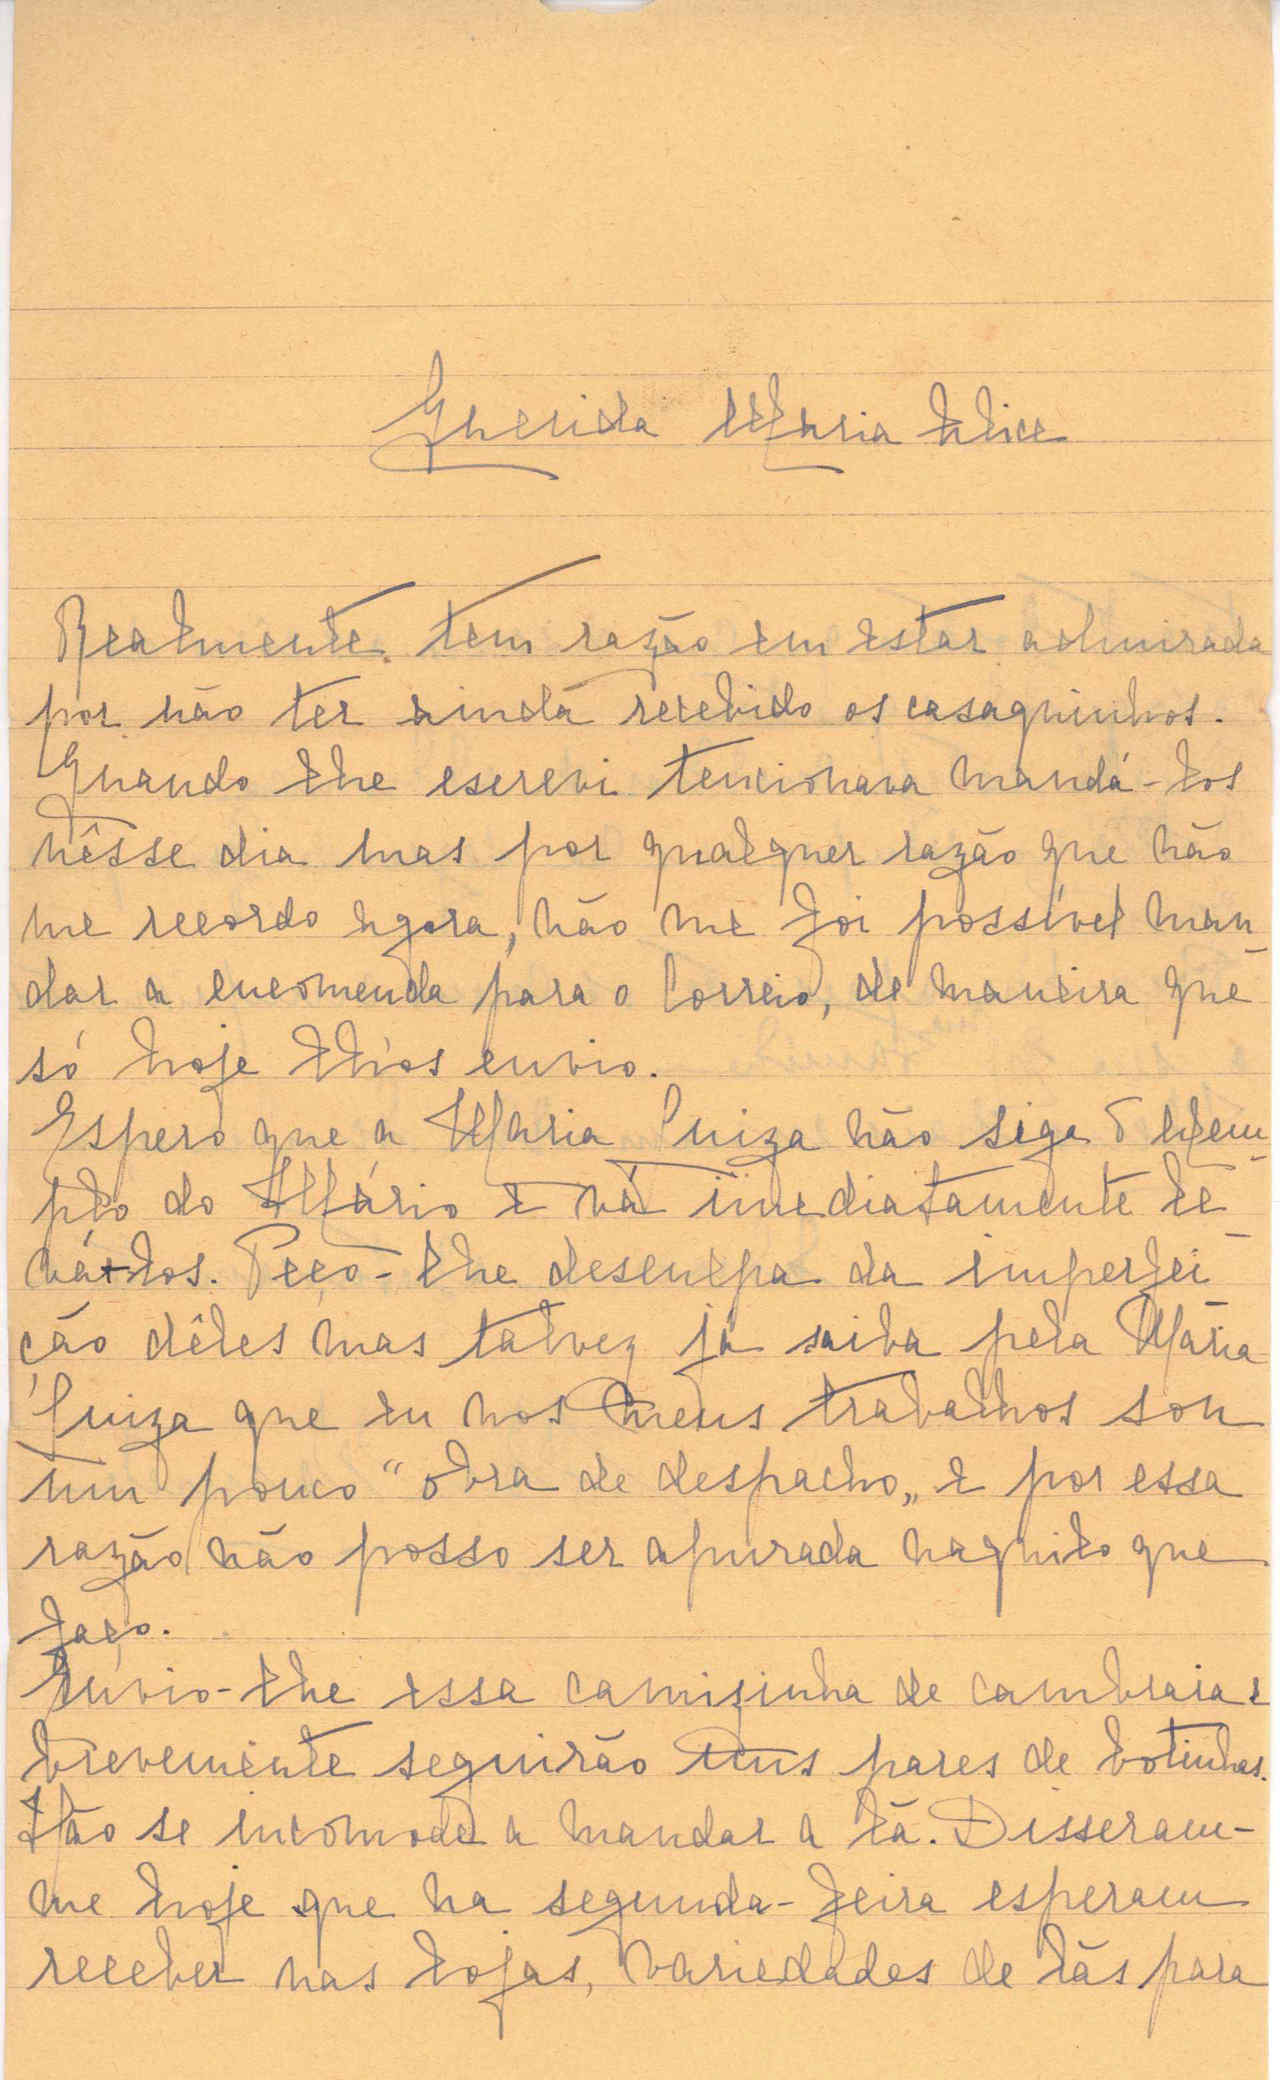 Querida Maria Alice
Realmente tem razão em estar admirada
por não ter ainda recebido os casaquinhos.
Quando lhe escrevi tencionava mandá-los
nêsse dia mas por qualquer razão que não
me recordo agora, não me foi possível man-
dar a encomenda para o Correio, de maneira que
só hoje lh'os envio.
Espero que a Maria Luiza não siga o exem-
plo do Mário e vá imediatamente le-
vá-los. Peço-lhe desculpa da imperfei-
ção dêles mas talvez já saiba pela Maria
Luiza que eu nos meus trabalhos sou
um pouco "obra de despacho„ e por essa
razão não posso ser apurada naquilo que
faço.
Envio-lhe essa camisinha de cambraia e
brevemente seguirão uns pares de botinhas.
Não se incomode a mandar a lã. Disseram-
me hoje que na segunda-feira esperam
receber nas lojas, variedades de lãs para